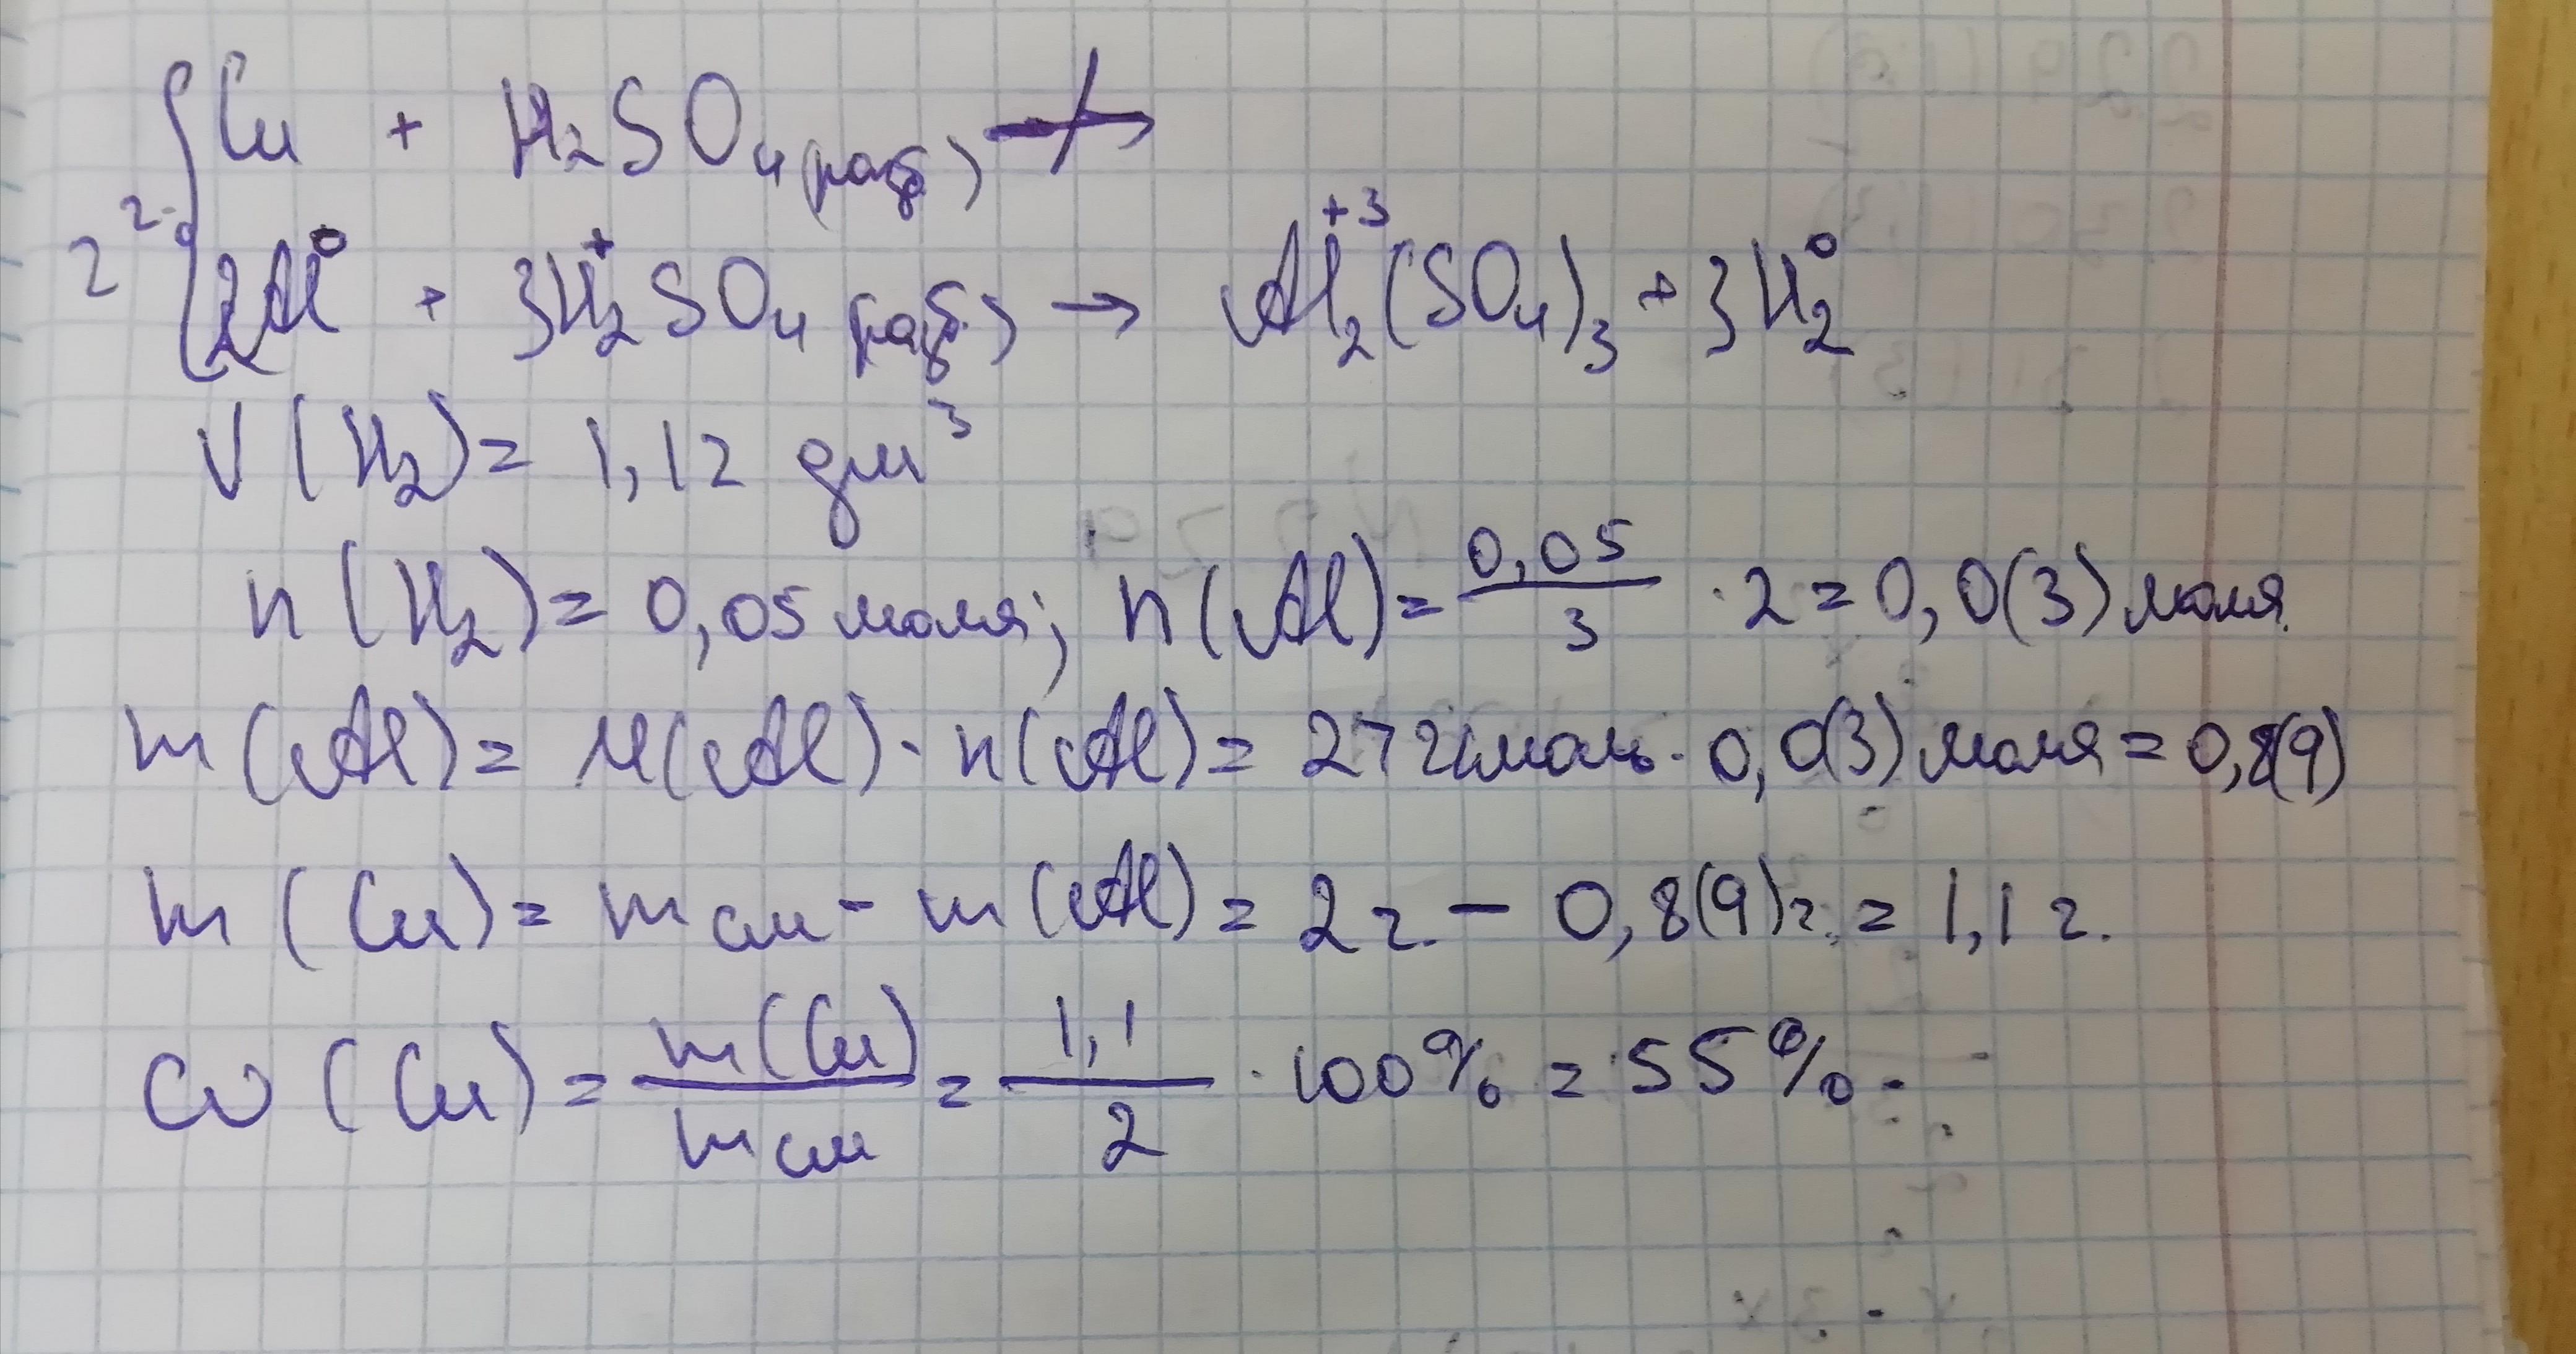 Cu + H₂SO₄(разб) ↛
2 г. 2Al⁰ + 3H₂⁺SO₄(разб.) → Al₂⁺³(SO₄)₃ + 3H₂⁰
V(H₂) = 1,12 дм³
n(H₂) = 0,05 моля; n(Al) = 0,05/3 · 2 = 0,0(3) моля.
m(Al) = M(Al) · n(Al) = 27 г/моль · 0,0(3) моля = 0,8(9)
m(Cu) = mсм - m(Al) = 2г. - 0,8(9)г. = 1,1 г.
ω(Cu) = m(Cu)/mсм = 1,1/2 · 100% = 55%.